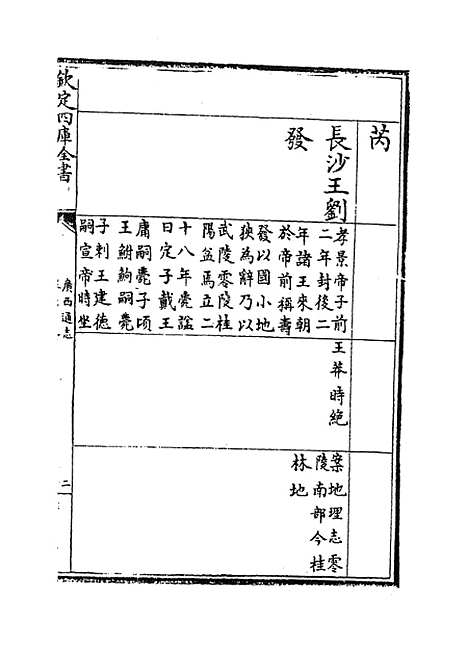 芮
長沙王劉
發
孝景帝子前
二年封後二
年諸王來朝
於帝前稱壽
發以國小地
狹為辭乃以
武陵零陵桂
陽益焉立二
十八年薨諡
日定子戴王
庸嗣薨子頃
王鮒鮈嗣薨
子剌王建德
嗣宣帝時坐
王莽時絶
案地理志零
陵南部今桂
林地
欽定四庫全書
廣西通志
二